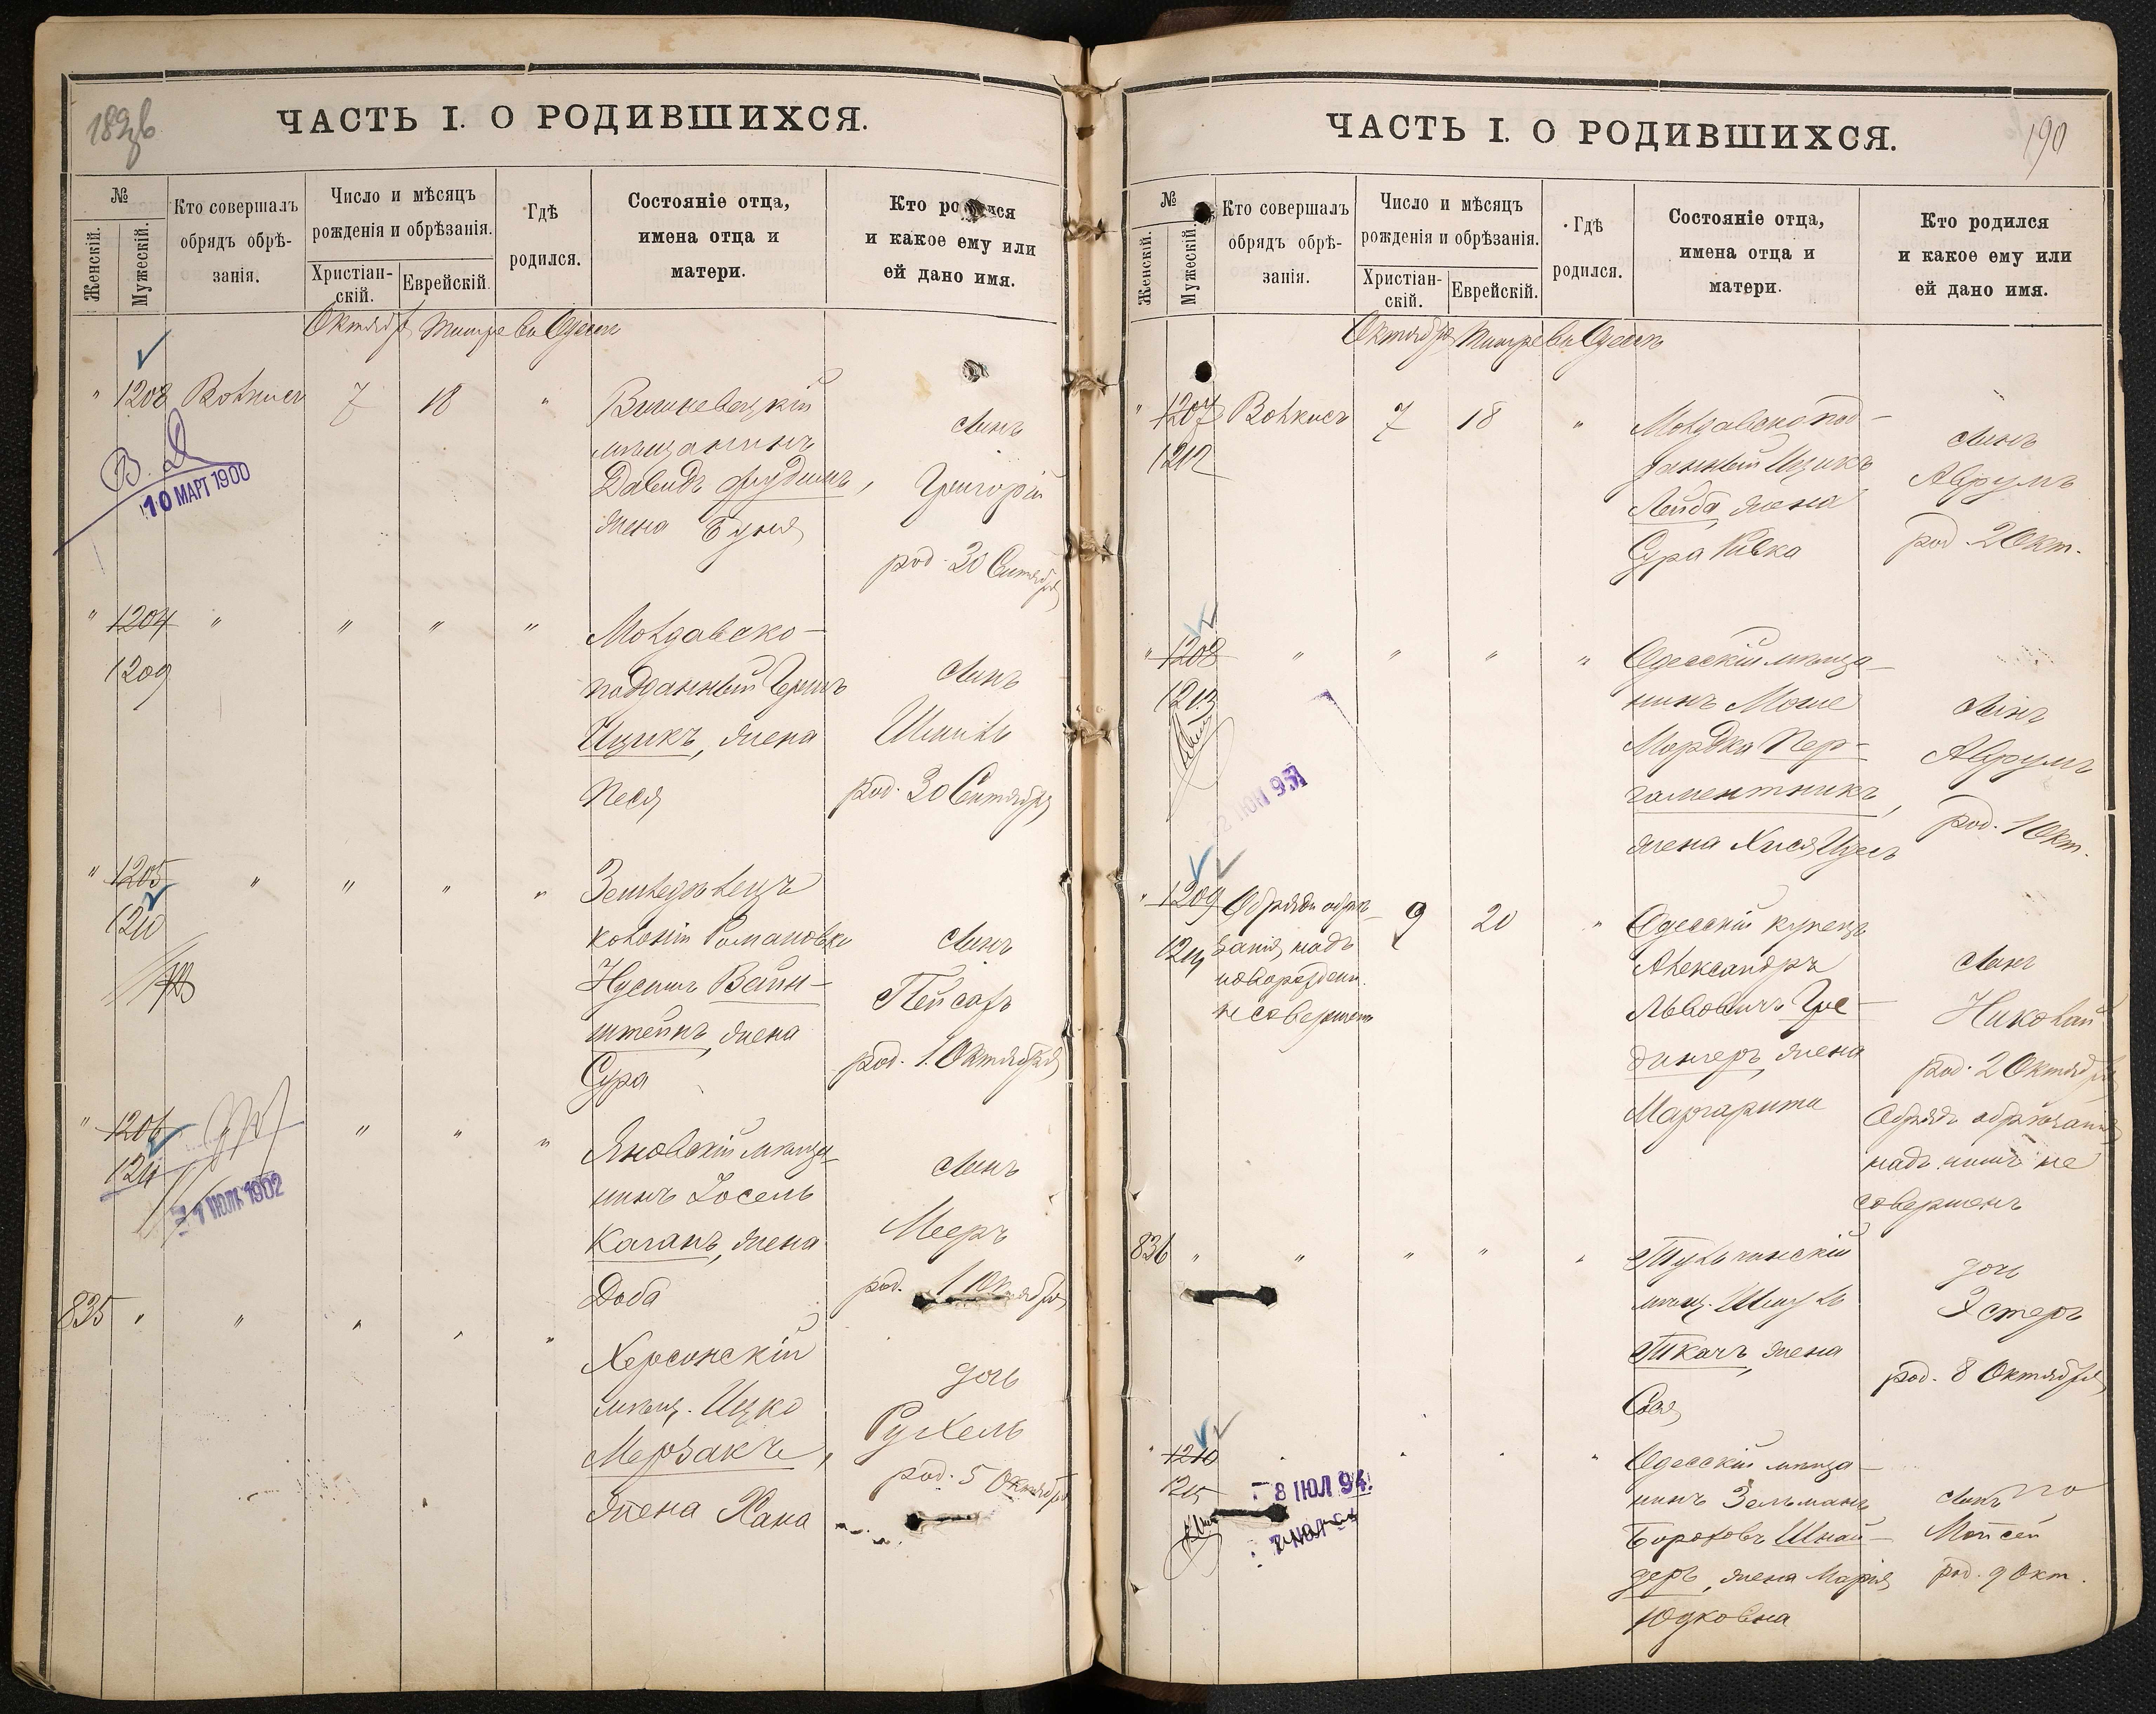 ЧАСТЬ I. О РОДИВШИХСЯ.
№
Женскій.
Мужескій.
Кто совершалъ
обрядъ обрѣ-
занія.
Число и мѣсяцъ
рожденія и обрѣзанія.
Христіан-
скій.
Еврейскій.
Гдѣ
родился.
Состояніе отца,
имена отца и
матери.
Кто родился
и какое ему или
ей дано имя.
Октябрь Тишре въ Одессѣ
" 1208 7 18 "
мѣщанинъ
Давидъ
жена
сынъ
Григорій
род. 30 Сентября
10 МАРТ 1900
" 1204 " " " "
1209
Молдавско-
подданный Гершъ
Ицикъ, жена
Песя
сынъ
Шмиль
род. 30 Сентября
" 1205 " " " "
1210
Земледѣлецъ
колоніи Романовки
Нусинъ Вайн-
штейнъ, жена
Сура
сынъ
Пейсахъ
род. 1 Октября
" 1206 " " "
1211
7 ИЮЛЬ 1902
Яновскій мѣща-
нинъ Іосель
Каганъ, жена
Доба
сынъ
Мееръ
род. 1 Октября
835 " " " " "
Херсонскій
мѣщ. Ицко
Мерзакъ,
жена Хана
дочь
Рухель
род. 5 Октября
ЧАСТЬ I. О РОДИВШИХСЯ.
190
№
Женскій.
Мужескій.
Кто совершалъ
обрядъ обрѣ-
занія.
Число и мѣсяцъ
рожденія и обрѣзанія.
Христіан-
скій.
Еврейскій.
Гдѣ
родился.
Состояніе отца,
имена отца и
матери.
Кто родился
и какое ему или
ей дано имя.
Октябрь Тишре въ Одессѣ
" 1207 7 18 "
1212
Молдавскопод-
данный Ицикъ
Лейба, жена
Сура Ривка
сынъ
Аврумъ
род. 2 Окт.
" 1208 " " " "
1213
Одесскій мѣща-
нинъ Моше
Мордко Пер-
гаментникъ,
жена Хися
сынъ
Аврумъ
род. 1 Окт.
" 1209 Обрядъ обрѣ- 9 20 "
1214 занія надъ
новорожден.
не совершенъ
Одесскій купецъ
Александръ
Львовичъ Гре-
дингеръ, жена
Маргарита
сынъ
Николай
род. 2 Октября
Обрядъ обрѣзанія
надъ нимъ не
совершенъ
836 " " " " "
Тульчинскій
мѣщ. Шмуль
Ткачъ, жена
Сося
дочь
Эстеръ
род. 8 Октября
" 1210
1215
8 ИЮЛ 94
Одесскій мѣща-
нинъ Зельманъ
Боруховъ Шнай-
деръ, жена Марія
Юдковна
сынъ
Мойсей
род. 9 Окт.